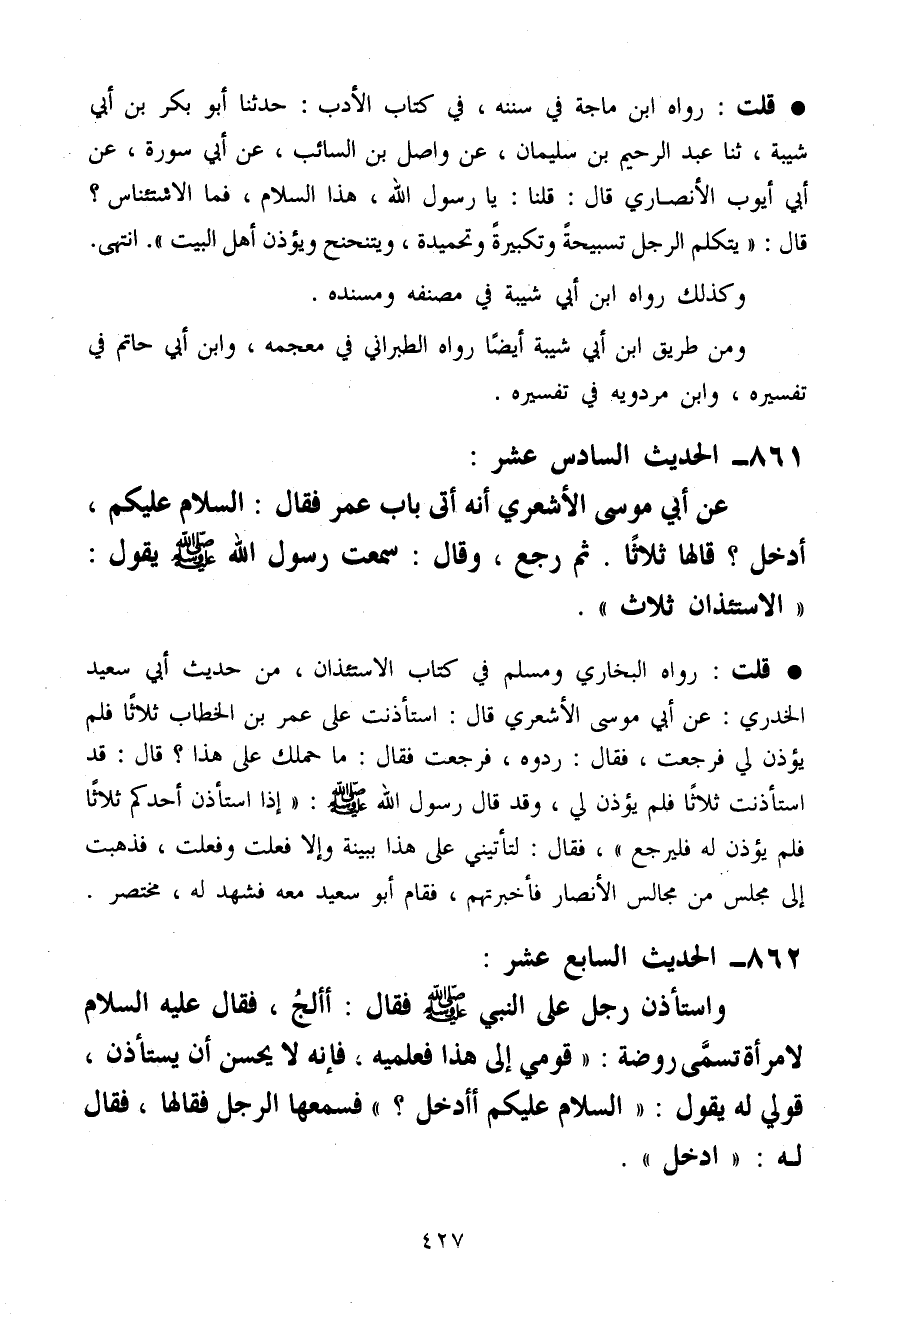 ● قلت : رواه ابن ماجة في سننه ، في كتاب الأدب : حدثنا أبو بكر بن أبي
شيبة ، ثنا عبد الرحيم بن سليمان ، عن واصل بن السائب ، عن أبي سورة ، عن
أبي أيوب الأنصاري قال : قلنا : يا رسول الله ، هذا السلام ، فما الاشتئناس ؟
قال : « يتكلم الرجل تسبيحةً وتكبيرةً وتحميدة ، ويتنحنح ويؤذن أهل البيت ». انتهى.
وكذلك رواه ابن أبي شيبة في مصنفه ومسنده .
ومن طريق ابن أبي شيبة أيضًا رواه الطبراني في معجمه ، وابن أبي حاتم في
تفسيره ، وابن مردويه في تفسيره .
٨٦١ـ الحديث السادس عشر :
عن أبي موسى الأشعري أنه أتى باب عمر فقال : السلام عليكم ،
أدخل ؟ قالها ثلاثًا . ثم رجع ، وقال : سمعت رسول الله ﷺ يقول :
« الاستئذان ثلاث » .
● قلت : رواه البخاري ومسلم في كتاب الاستئذان ، من حديث أبي سعيد
الخدري : عن أبي موسى الأشعري قال : استأذنت على عمر بن الخطاب ثلاثًا فلم
يؤذن لي فرجعت ، فقال : ردوه ، فرجعت فقال : ما حملك على هذا ؟ قال : قد
استأذنت ثلاثًا فلم يؤذن لي ، وقد قال رسول الله ﷺ : « إذا استأذن أحدكم ثلاثًا
فلم يؤذن له فليرجع » ، فقال : لتأتيني على هذا ببينة وإلا فعلت وفعلت ، فذهبت
إلى مجلس من مجالس الأنصار فأخبرتهم ، فقام أبو سعيد معه فشهد له ، مختصر .
٨٦٢ـ الحديث السابع عشر :
واستأذن رجل على النبي ﷺ فقال : أألجُ ، فقال عليه السلام
لامرأة تسمَّى روضة : « قومي إلى هذا فعلميه ، فإنه لا يحسن أن يستأذن ،
قولي له يقول : « السلام عليكم أأدخل ؟ » فسمعها الرجل فقالها ، فقال
لـه : « ادخل » .
٤٢٧